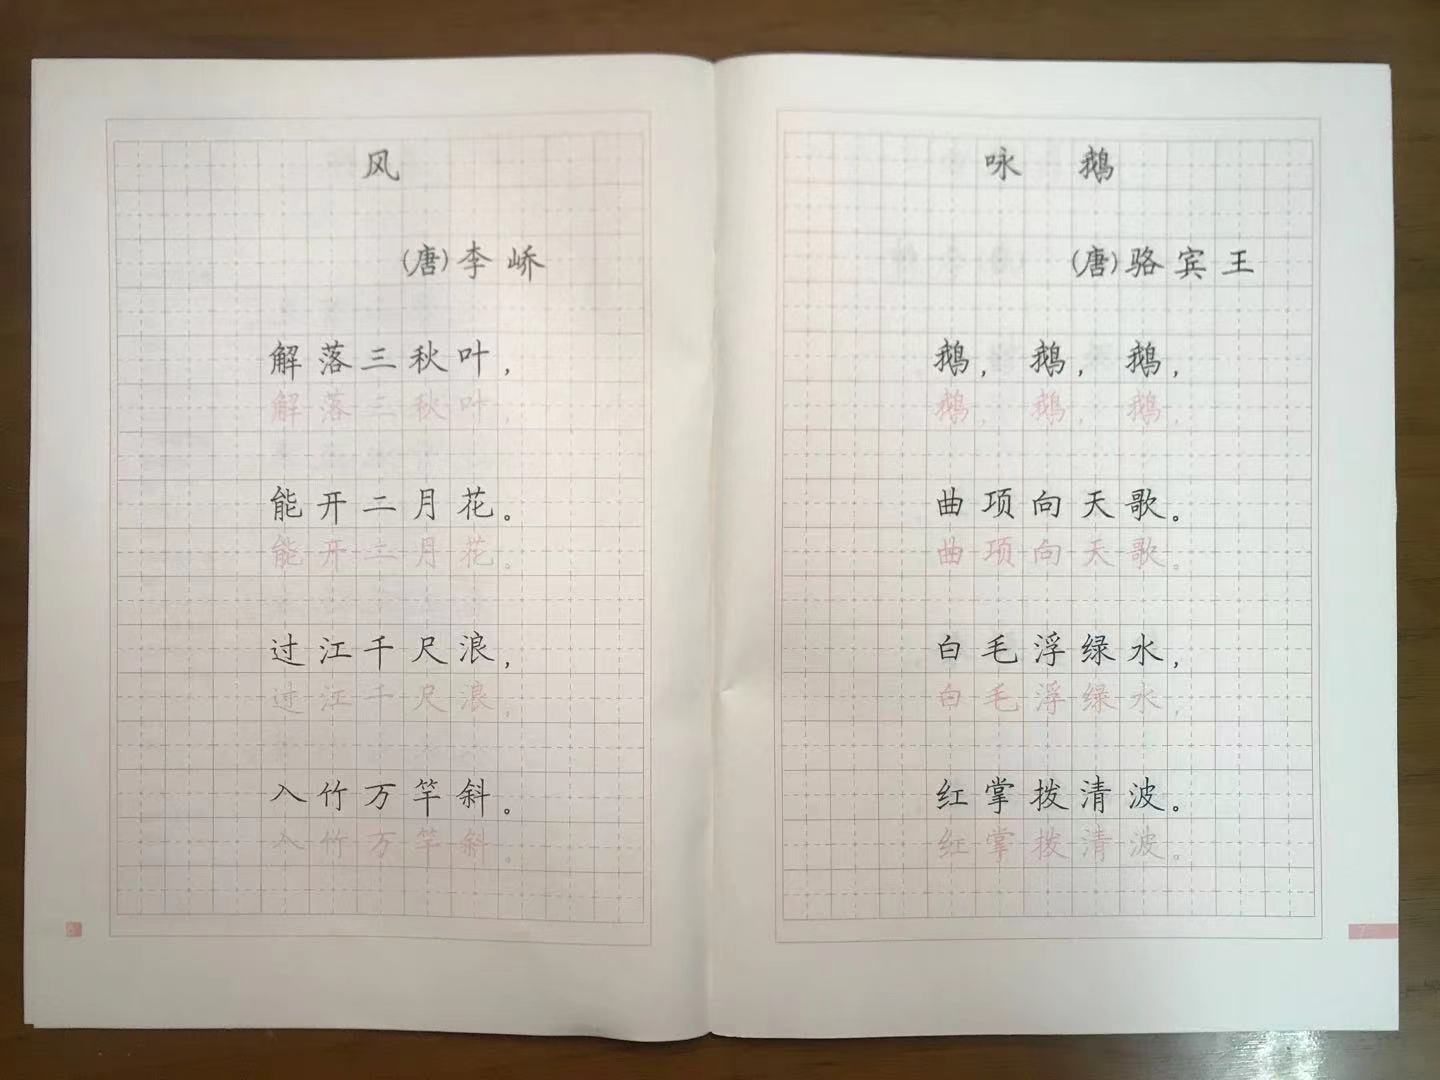 风
(唐)李峤
解落三秋叶，
解落三秋叶，
能开二月花。
能开二月花。
过江千尺浪，
过江千尺浪，
入竹万竿斜。
入竹万竿斜。
6
咏 鹅
(唐)骆宾王
鹅，鹅，鹅，
鹅，鹅，鹅，
曲项向天歌。
曲项向天歌。
白毛浮绿水，
白毛浮绿水，
红掌拨清波。
红掌拨清波。
7